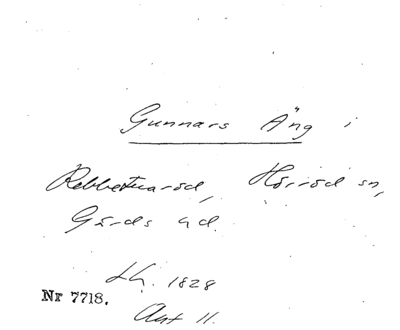 Gunnars Äng i
Rebbetuaröd, Hörröd sn,
Gärds hd.
Lh. 1828
Nr 7718.
Akt 11.